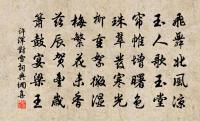 飛舞北風涼
玉人歌玉堂
簾帷增曙色
珠翠發寒光
柳重絮微濕
梅繁花未香
茲辰賀豐歲
簫鼓宴梁王
許渾對雪詞典網